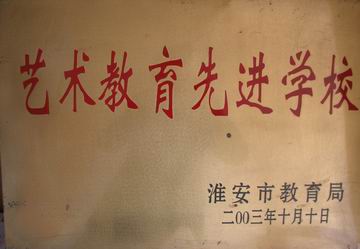 艺术教育先进学校
淮安市教育局
二00三年十月十日